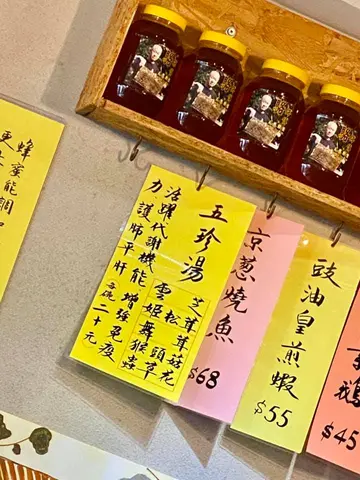 蜂蜜能調
五珍湯
雲芝
姬松茸
舞茸
猴頭菇
蟲草花
活躍代謝機能增強免疫
力護肺平肝 每碗二十元
京葱燒魚
$68
豉油皇煎蝦
$55
鵝
$45